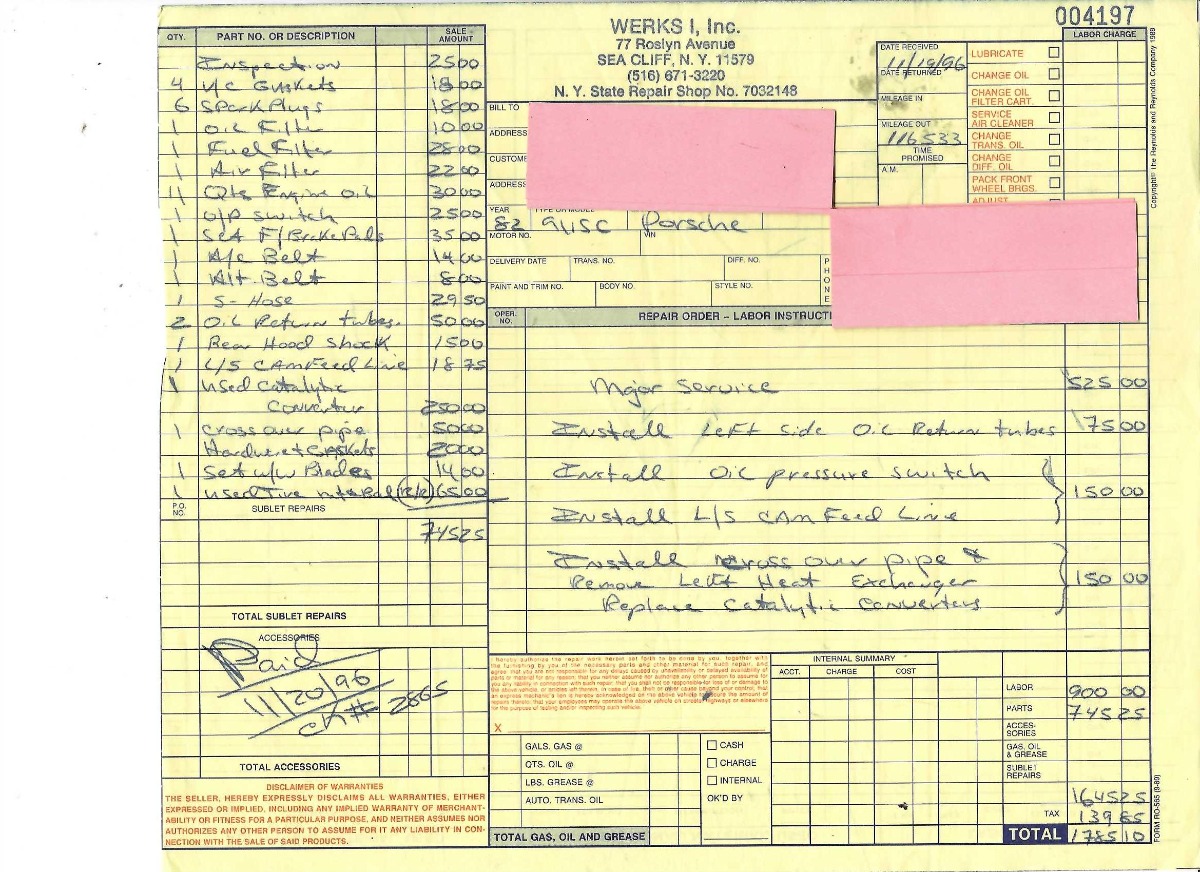 004197
WERKS I, Inc.
77 Roslyn Avenue
SEA CLIFF, N. Y. 11579
(516) 671-3220
N. Y. State Repair Shop No. 7032148
QTY. PART NO. OR DESCRIPTION SALE AMOUNT
Inspection 25 00
4 V/C Gaskets 18 00
6 Spark Plugs 18 00
1 Oil Filter 10 00
1 Fuel Filter 28 00
1 Air Filter 22 00
11 Qts Engine oil 30 00
1 O/P switch 25 00
1 Set F/Brake Pads 35 00
1 A/c Belt 14 00
1 Alt. Belt 8 00
1 S-Hose 29 50
2 Oil Return tubes. 50 00
1 Rear Hood Shock 15 00
1 L/S CAM Feed Line 18 75
1 Used Catalytic
Converter 250 00
1 Cross over pipe 50 00
Hardware + Gaskets 20 00
1 Set w/w Blades 14 00
1 used Tire (R/R) 65 00
P.O. NO. SUBLET REPAIRS
745 25
TOTAL SUBLET REPAIRS
ACCESSORIES
Paid
11/20/96
CK# 2865
TOTAL ACCESSORIES
DISCLAIMER OF WARRANTIES
THE SELLER, HEREBY EXPRESSLY DISCLAIMS ALL WARRANTIES, EITHER
EXPRESSED OR IMPLIED, INCLUDING ANY IMPLIED WARRANTY OF MERCHANT-
ABILITY OR FITNESS FOR A PARTICULAR PURPOSE, AND NEITHER ASSUMES NOR
AUTHORIZES ANY OTHER PERSON TO ASSUME FOR IT ANY LIABILITY IN CON-
NECTION WITH THE SALE OF SAID PRODUCTS.
BILL TO
ADDRESS
CUSTOME
ADDRESS
YEAR TYPE OR MODEL
82 911SC Porsche
MOTOR NO. VIN
DELIVERY DATE TRANS. NO. DIFF. NO.
PAINT AND TRIM NO. BODY NO. STYLE NO.
PHONE
DATE RECEIVED
11/19/96
DATE RETURNED
MILEAGE IN
MILEAGE OUT
116533
TIME PROMISED
A.M.
LABOR CHARGE
LUBRICATE
CHANGE OIL
CHANGE OIL FILTER CART.
SERVICE AIR CLEANER
CHANGE TRANS. OIL
CHANGE DIFF. OIL
PACK FRONT WHEEL BRGS.
ADJUST
Copyright © The Reynolds and Reynolds Company 1989
OPER. NO. REPAIR ORDER – LABOR INSTRUCTI
Major Service 525 00
Install Left Side Oil Return tubes 75 00
Install Oil pressure switch
150 00
Install L/S CAM Feed Line
Install Cross over pipe &
Remove Left Heat Exchanger 150 00
Replace Catalytic Converters
I hereby authorize the repair work herein set forth to be done by you, together with
the furnishing by you of the necessary parts and other material for such repair, and
agree that you are not responsible for any delays caused by unavailability or delayed availability of
parts or material for any reason; that you neither assume nor authorize any other person to assume for
you any liability in connection with such repair; that you shall not be responsible for loss of or damage to
the above vehicle, or articles left therein, in case of fire, theft or other cause beyond your control; that
an express mechanic's lien is hereby acknowledged on the above vehicle to secure the amount of
repairs thereto; that your employees may operate the above vehicle on streets, highways or elsewhere
for the purpose of testing and/or inspecting such vehicle.
X
GALS. GAS @
QTS. OIL @
LBS. GREASE @
AUTO. TRANS. OIL
TOTAL GAS, OIL AND GREASE
CASH
CHARGE
INTERNAL
OK'D BY
INTERNAL SUMMARY
ACCT. CHARGE COST
LABOR 900 00
PARTS 745 25
ACCES-SORIES
GAS, OIL & GREASE
SUBLET REPAIRS
1645 25
TAX 139 85
TOTAL 1785 10
FORM RO-565 (9-89)